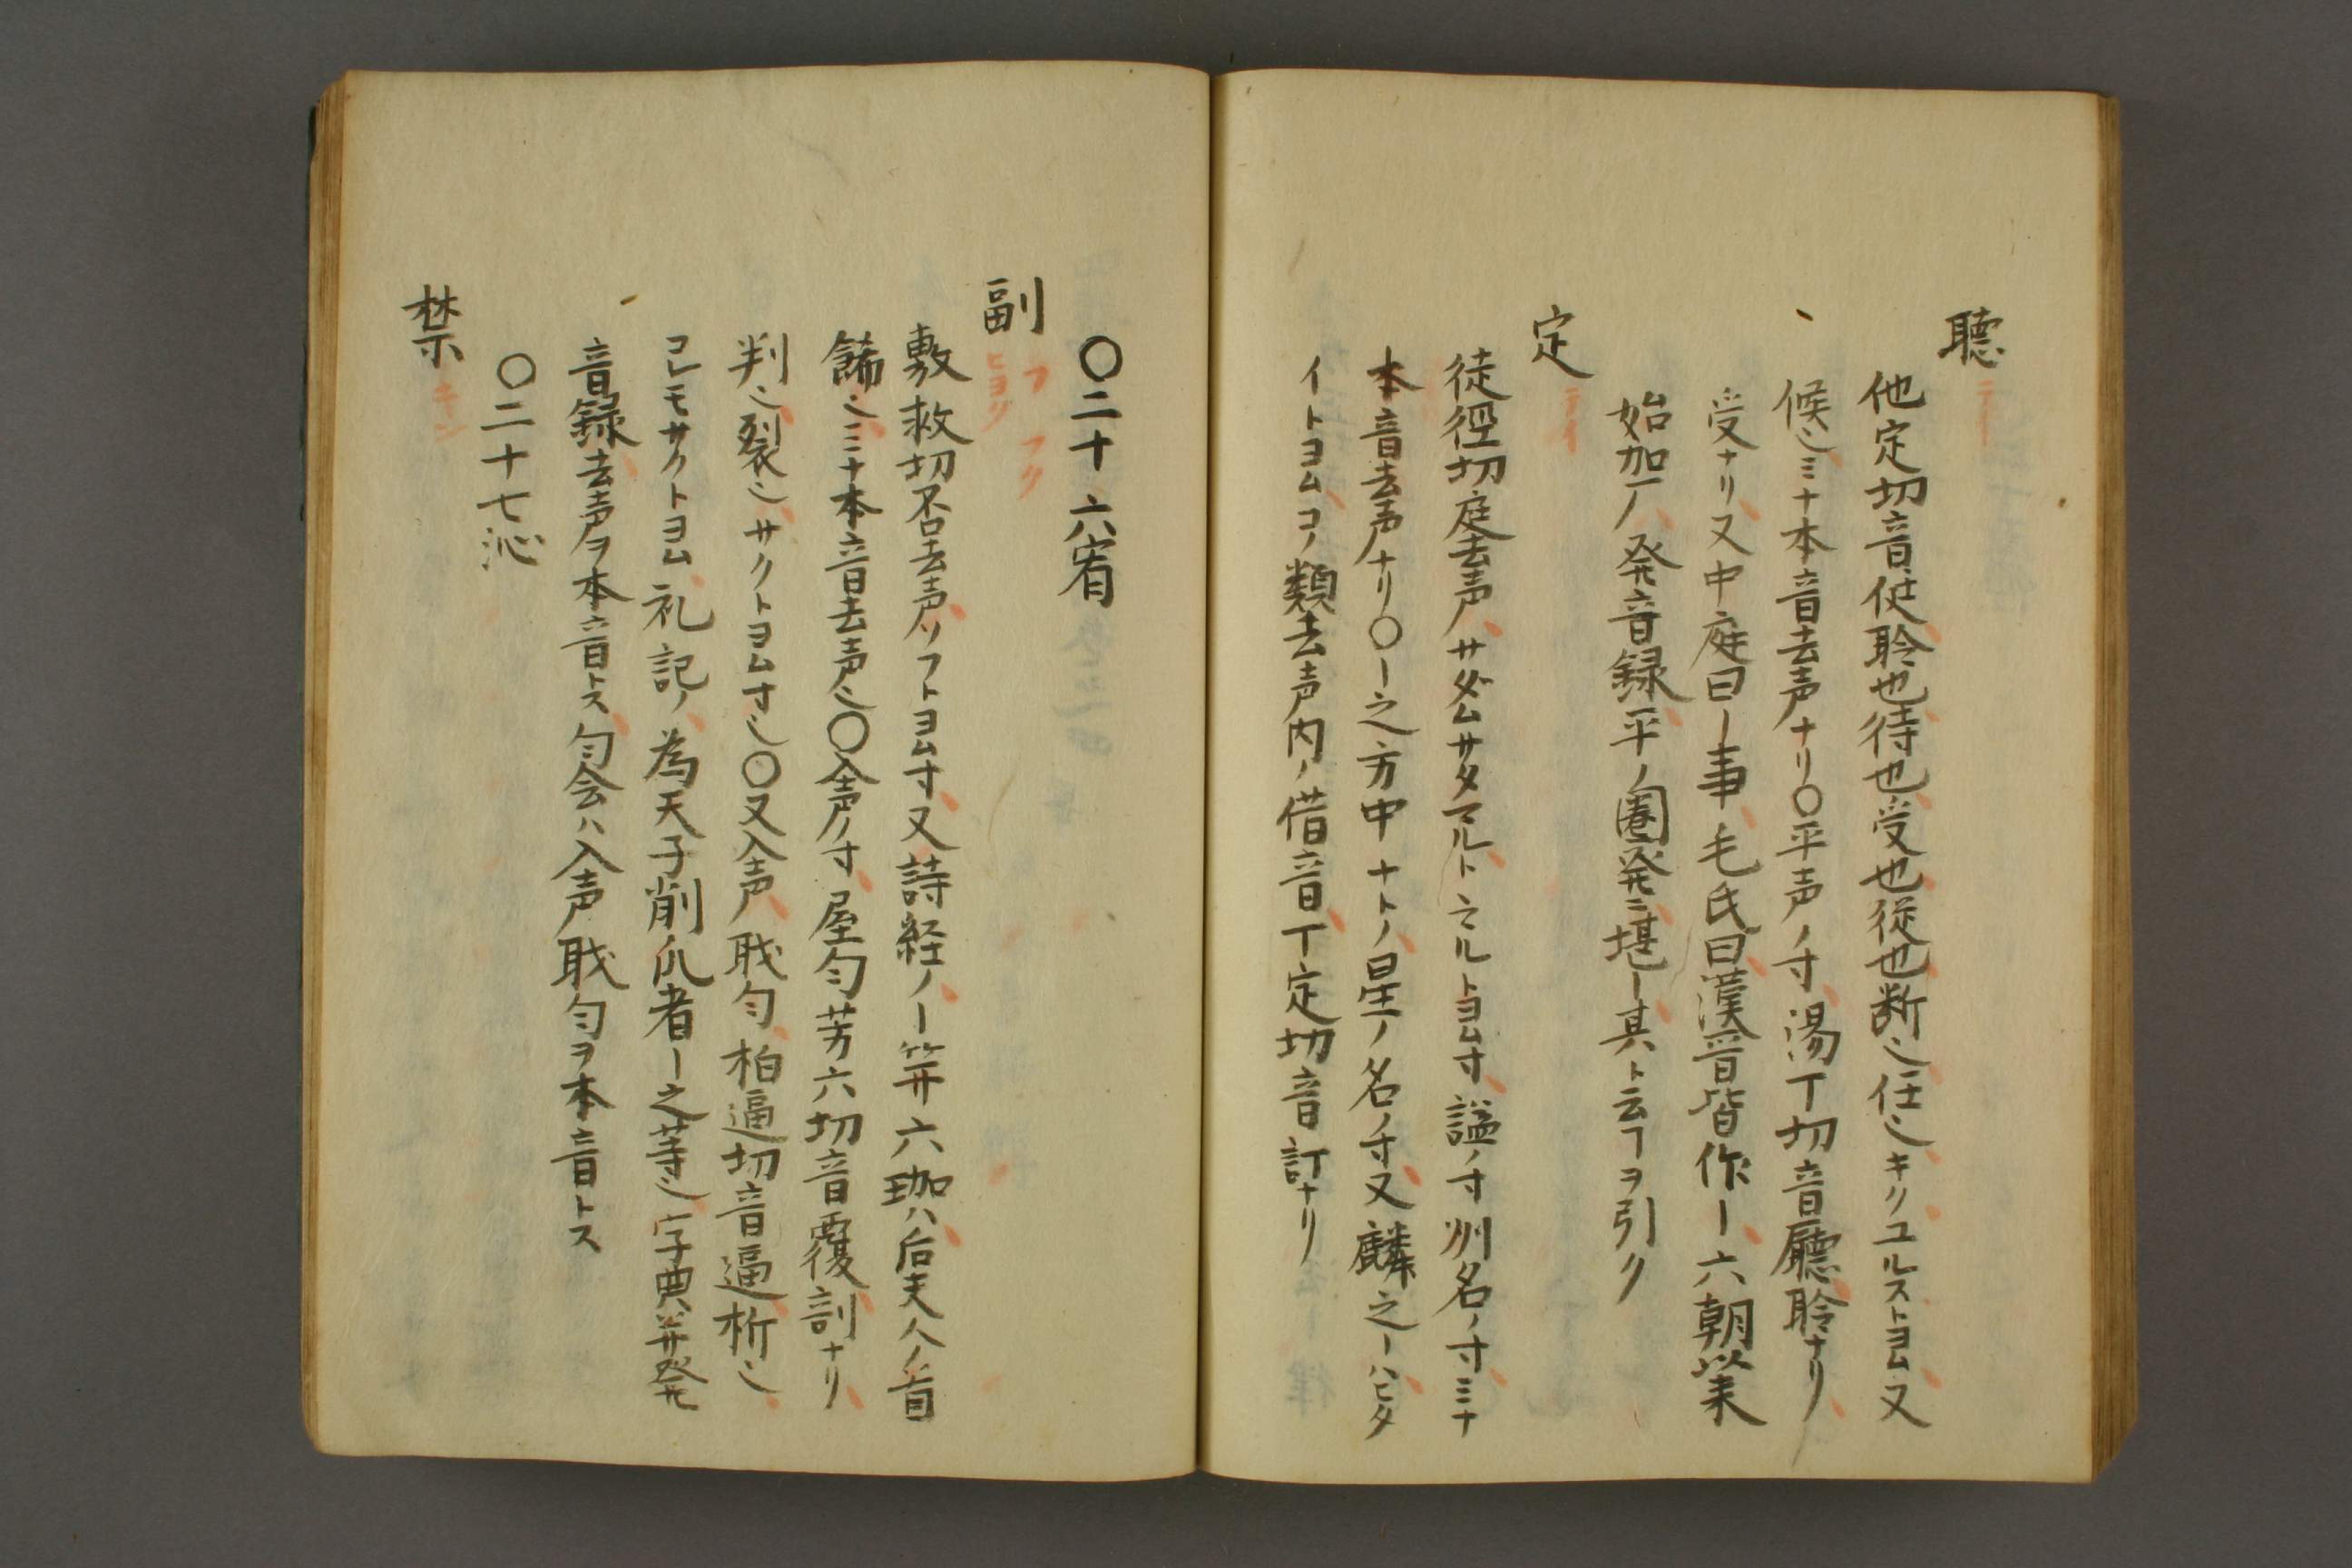 聴 テー
他定切音侹聆也待也受也従也断〻任〻キクユルストヨム又
候〻ミナ本音去声ナリ〇平声ノ寸湯丁切音廳聆ナリ
受ナリ又中庭曰ー事毛氏曰漢晋皆作ー六朝以来
始加厂発音録平ノ圏発ニ堪ー其ト云フヲ引ク
定 テイ
徒徑切庭去声サダムサタマルト マルトヨム寸謚ノ寸州名ノ寸ミナ
本音去声ナリ〇ー之方中ナトノ星ノ名ノ寸又麟之ーハヒタ
イトヨムコノ類去声内ノ借音丁定切音訂ナリ
〇二十六宥
副 フ フク ヒヨク
敷救切否去声ソフトヨム寸又詩経ノー笄六珈ハ后夫人ノ首
餙〻ミナ本音去声〻〇入声ノ寸屋匀芳六切音覆剖ナリ
判〻裂〻サクトヨム寸〻〇又入声職匀柏逼切音逼析〻
コレモサクトヨム礼記ノ為天子削爪者ー之䒭〻字典并発
音録去声ヲ本音トス匀会ハ入声職匀ヲ本音トス
〇二十七沁
禁 キン